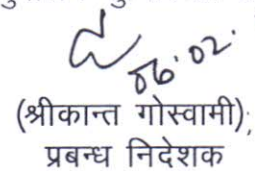 06.02.
(श्रीकान्त गोस्वामी),
प्रबन्ध निदेशक